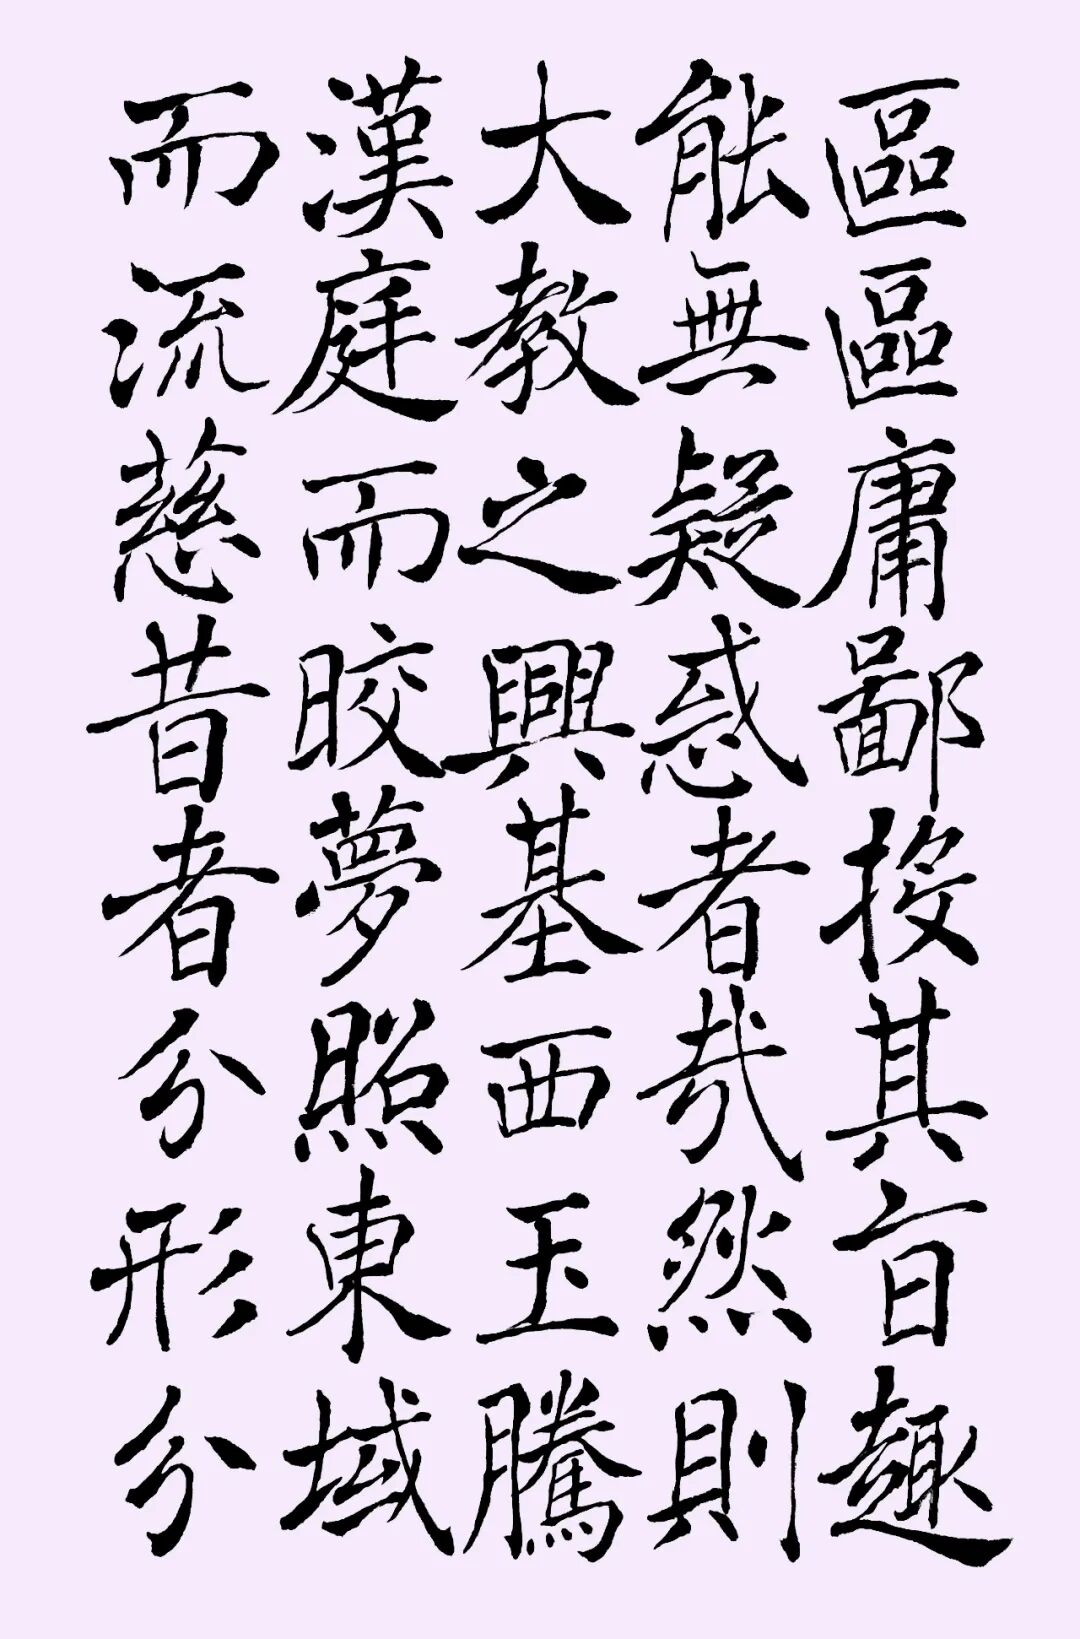 區區庸鄙投其旨趣
能無疑惑者哉然則
大教之興基西土騰
漢庭而晈夢照東域
而流慈昔者分形分